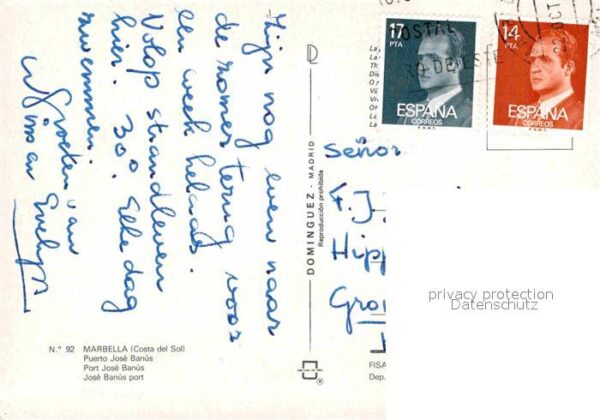 Zijn nog even naar
de zomer terug voor
een week helaas.
Volop strandleven
hier. 30°. Elke dag
zwemmen.
Groeten van
Evelyn
N.° 92 MARBELLA (Costa del Sol)
Puerto José Banús
Port José Banús
José Banús port
DOMINGUEZ - MADRID
Reproducción prohibida
17
PTA
ESPAÑA
CORREOS
F.N.M.T.
14
PTA
ESPAÑA
CORREOS
F.N.M.T.
POSTAL
OCT
Señor
F.J.
Hipp
Gro
FISA
Dep.
privacy protection
Datenschutz